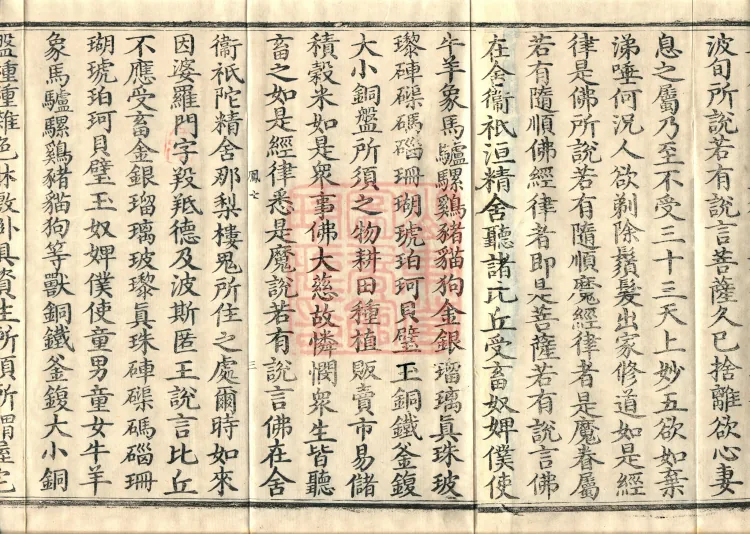 波旬所說若有說言菩薩久已捨離欲心妻
息之屬乃至不受三十三天上妙五欲如棄
涕唾何況人欲剃除鬚髮出家修道如是經
律是佛所說若有隨順魔經律者是魔眷屬
若有隨順佛經律者即是菩薩若有說言佛
在舍衞祇洹精舍聽諸比丘受畜奴婢僕使
牛羊象馬驢騾鷄豬貓狗金銀瑠璃真珠玻
瓈硨磲碼碯珊瑚琥珀珂貝璧玉銅鐵釜鍑
大小銅盤所須之物耕田種植販賣市易儲
積穀米如是衆事佛大慈故憐愍衆生皆聽
畜之如是經律悉是魔說若有說言佛在舍
鳳七 三
衞祇陀精舍那梨樓鬼所住之處爾時如來
因婆羅門字羖羝德及波斯匿王說言比丘
不應受畜金銀瑠璃玻瓈真珠硨磲碼碯珊
瑚琥珀珂貝璧玉奴婢僕使童男童女牛羊
象馬驢騾鷄豬貓狗等獸銅鐵釜鍑大小銅
盤種種雜色牀敷臥具資生所須所謂屋宅